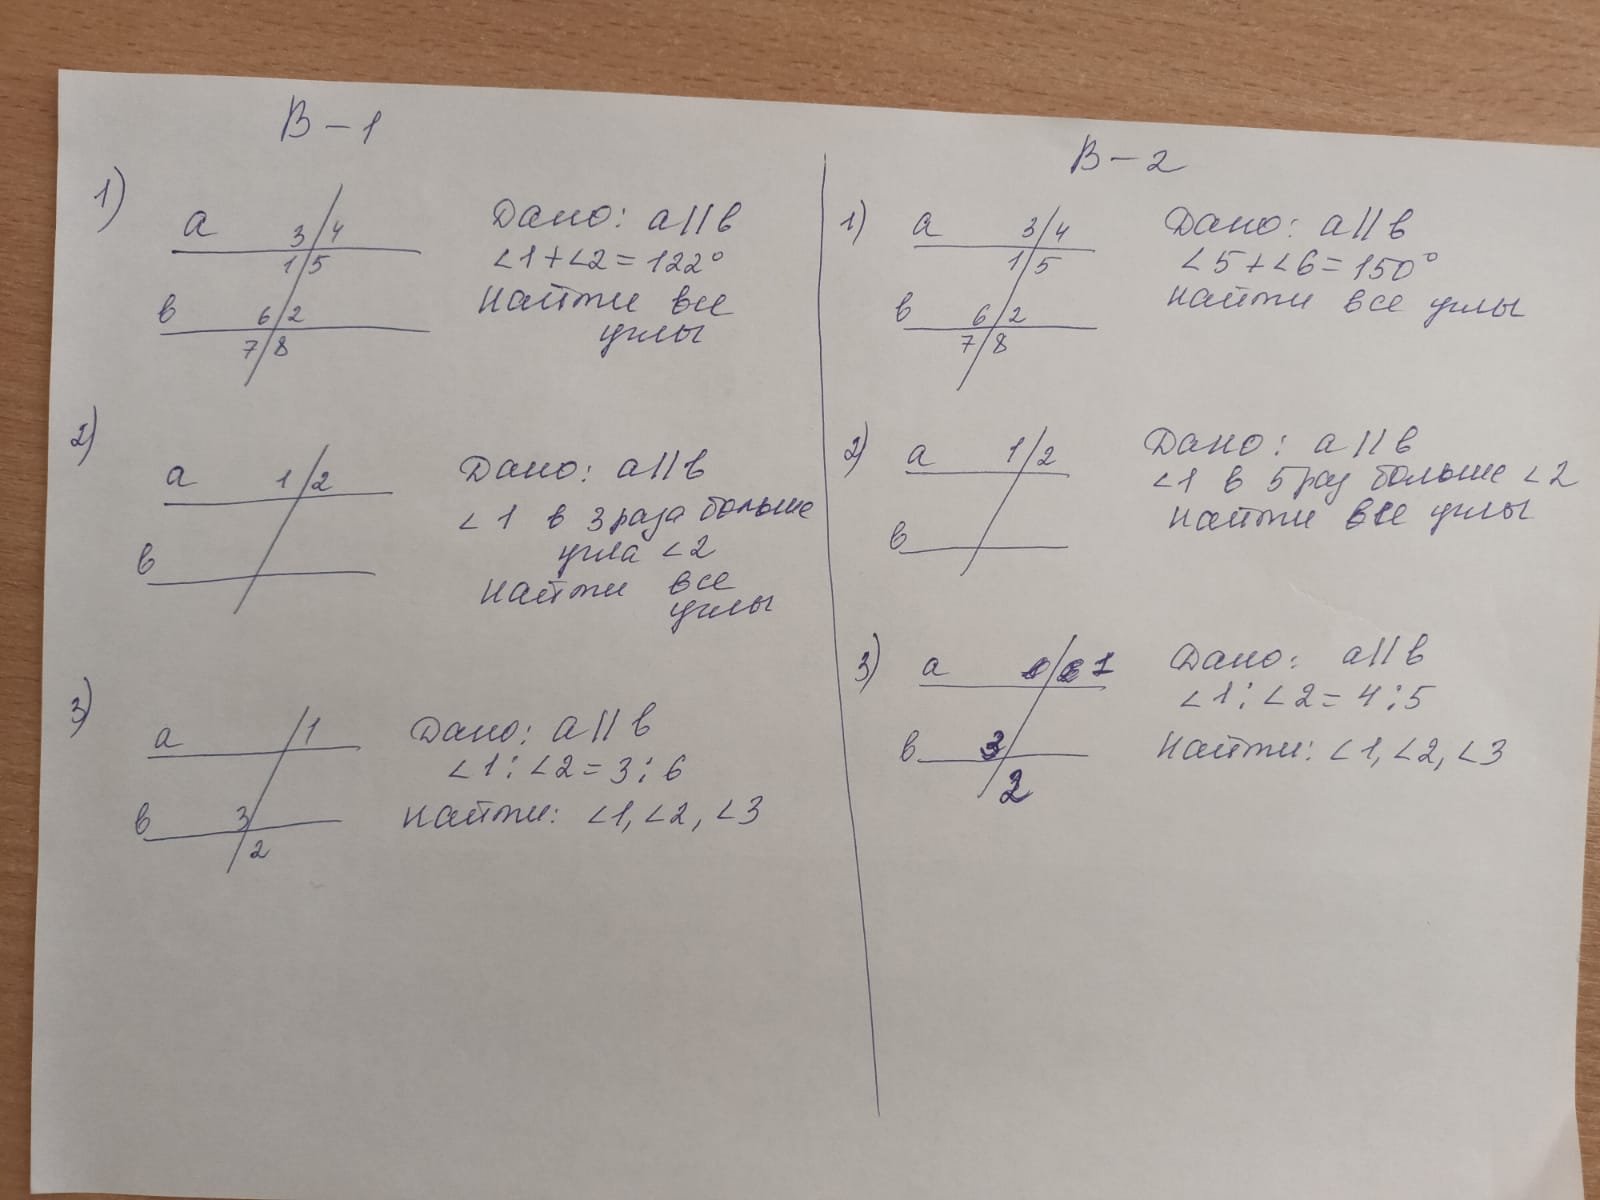 В-1
1)
а 3 4
1 5
в 6 2
7 8
Дано: а||в
∠1+∠2=122°
Найти все
углы
2)
а 1 2
в
Дано: а||в
∠1 в 3 раза больше
угла ∠2
Найти все
углы
3)
а 1
в 3
2
Дано: а||в
∠1:∠2=3:6
Найти: ∠1,∠2,∠3
В-2
1)
а 3 4
1 5
в 6 2
7 8
Дано: а||в
∠5+∠6=150°
Найти все углы
2)
а 1 2
в
Дано: а||в
∠1 в 5 раз больше ∠2
Найти все углы
3)
а 1
в 3
2
Дано: а||в
∠1:∠2=4:5
Найти: ∠1,∠2,∠3